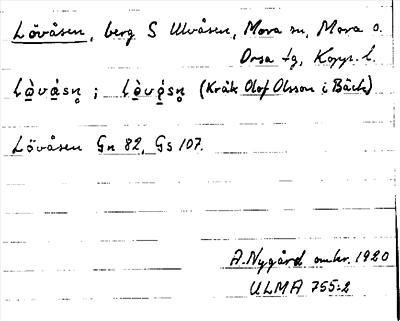 Lövåsen, berg S Ulvåsen, Mora sn, Mora o.
Orsa tg, Kopp. l.
(Kråk Olof Olsson i Bäck)
Lövåsen Gn 82, Gs 107.
A. Nygård omkr. 1920
ULMA 755:2